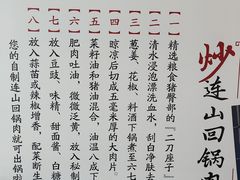 炒连山回锅肉
【一】精选粮食猪臀部的“二刀座子”
【二】清水浸泡漂洗血水，刮白净肤表
【三】葱姜、花椒、料酒下锅煮至六七
【四】晾凉后切成五毫米厚的大肉片。
【五】菜籽油和猪油混合，油温八成下
【六】肥肉吐油，微微泛黄，放入秘制
【七】放入豆豉、味精、甜面酱、白糖
【八】放入蒜苗或辣椒增香，配菜断生
您的自制连山回锅肉就可出锅啦